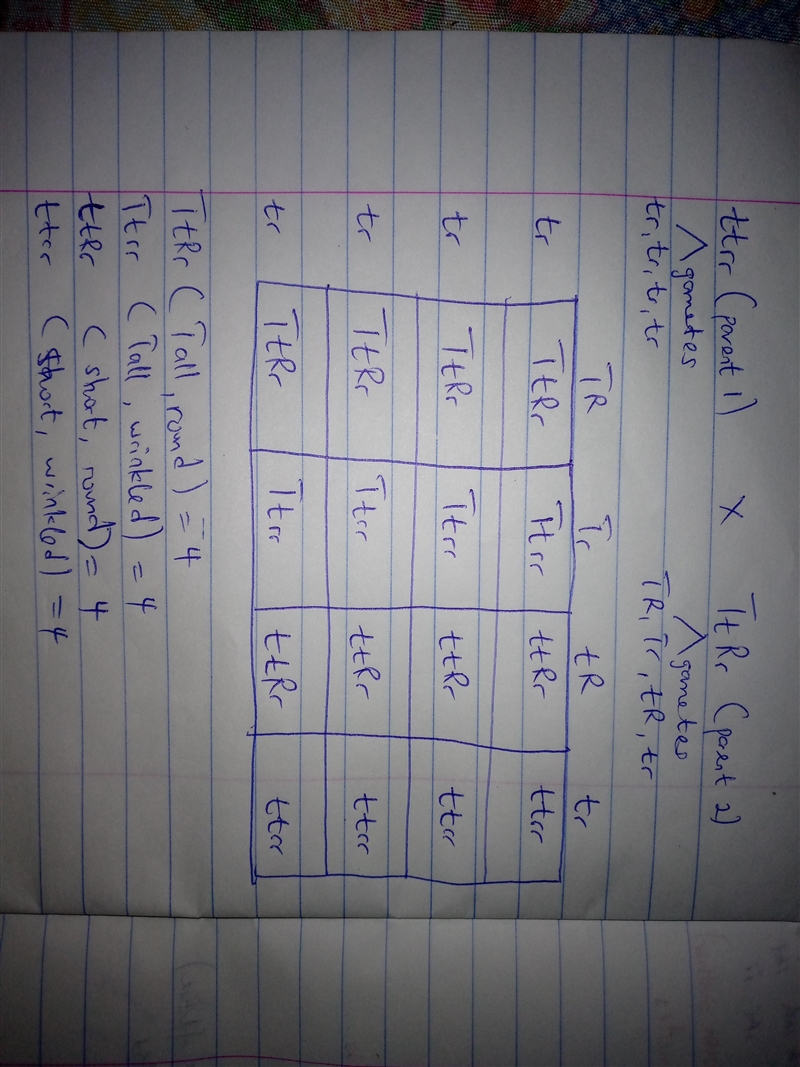 ttrr (parent 1) X TtRr (parent 2)
gametes gametes
tr, tr, tr, tr TR, Tr, tR, tr
TR Tr tR tr
tr TtRr Ttrr ttRr ttrr
tr TtRr Ttrr ttRr ttrr
tr TtRr Ttrr ttRr ttrr
tr TtRr Ttrr ttRr ttrr
TtRr (Tall, round) = 4
Ttrr (Tall, wrinkled) = 4
ttRr (short, round) = 4
ttrr (short, wrinkled) = 4